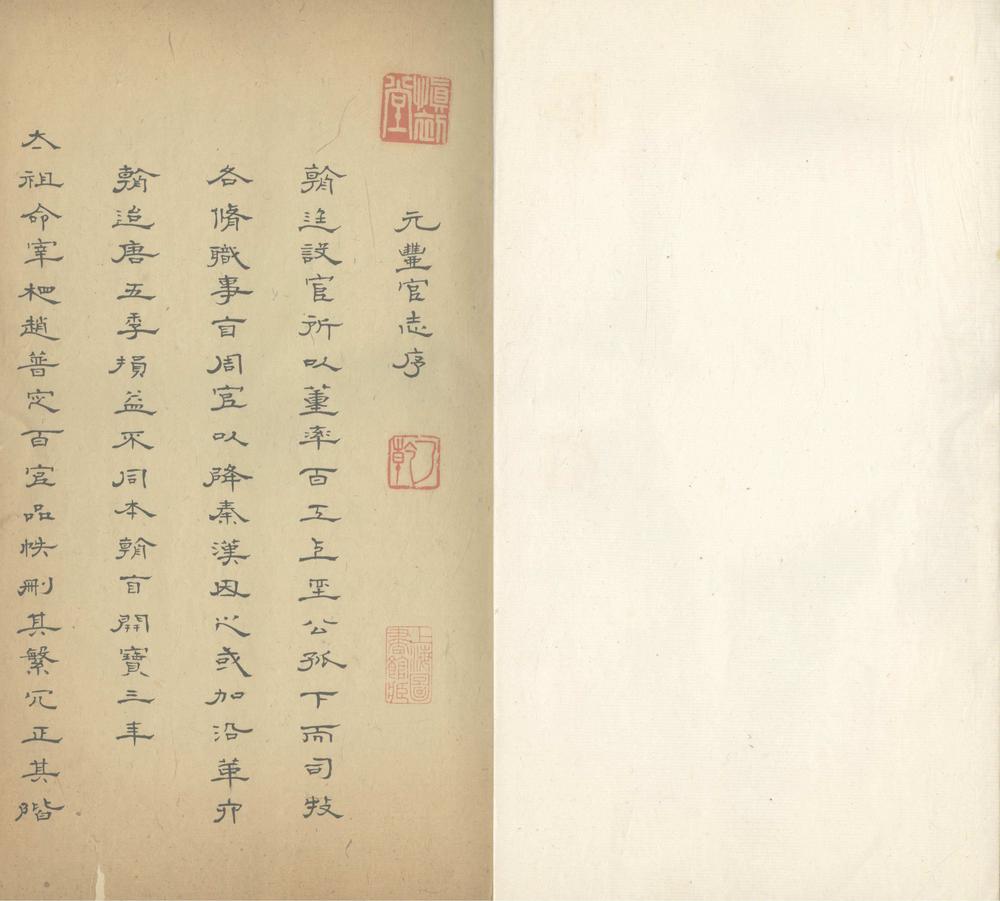 慎初堂
元豐官志序
上海圖書館藏
朝廷設官所以董率百工上至公孤下而司牧
各脩職事自周官以降秦漢因之或加沿革六
朝迨唐五季損益不同本朝自開寶三年
太祖命宰相趙普定百官品帙刪其繁冗正其階